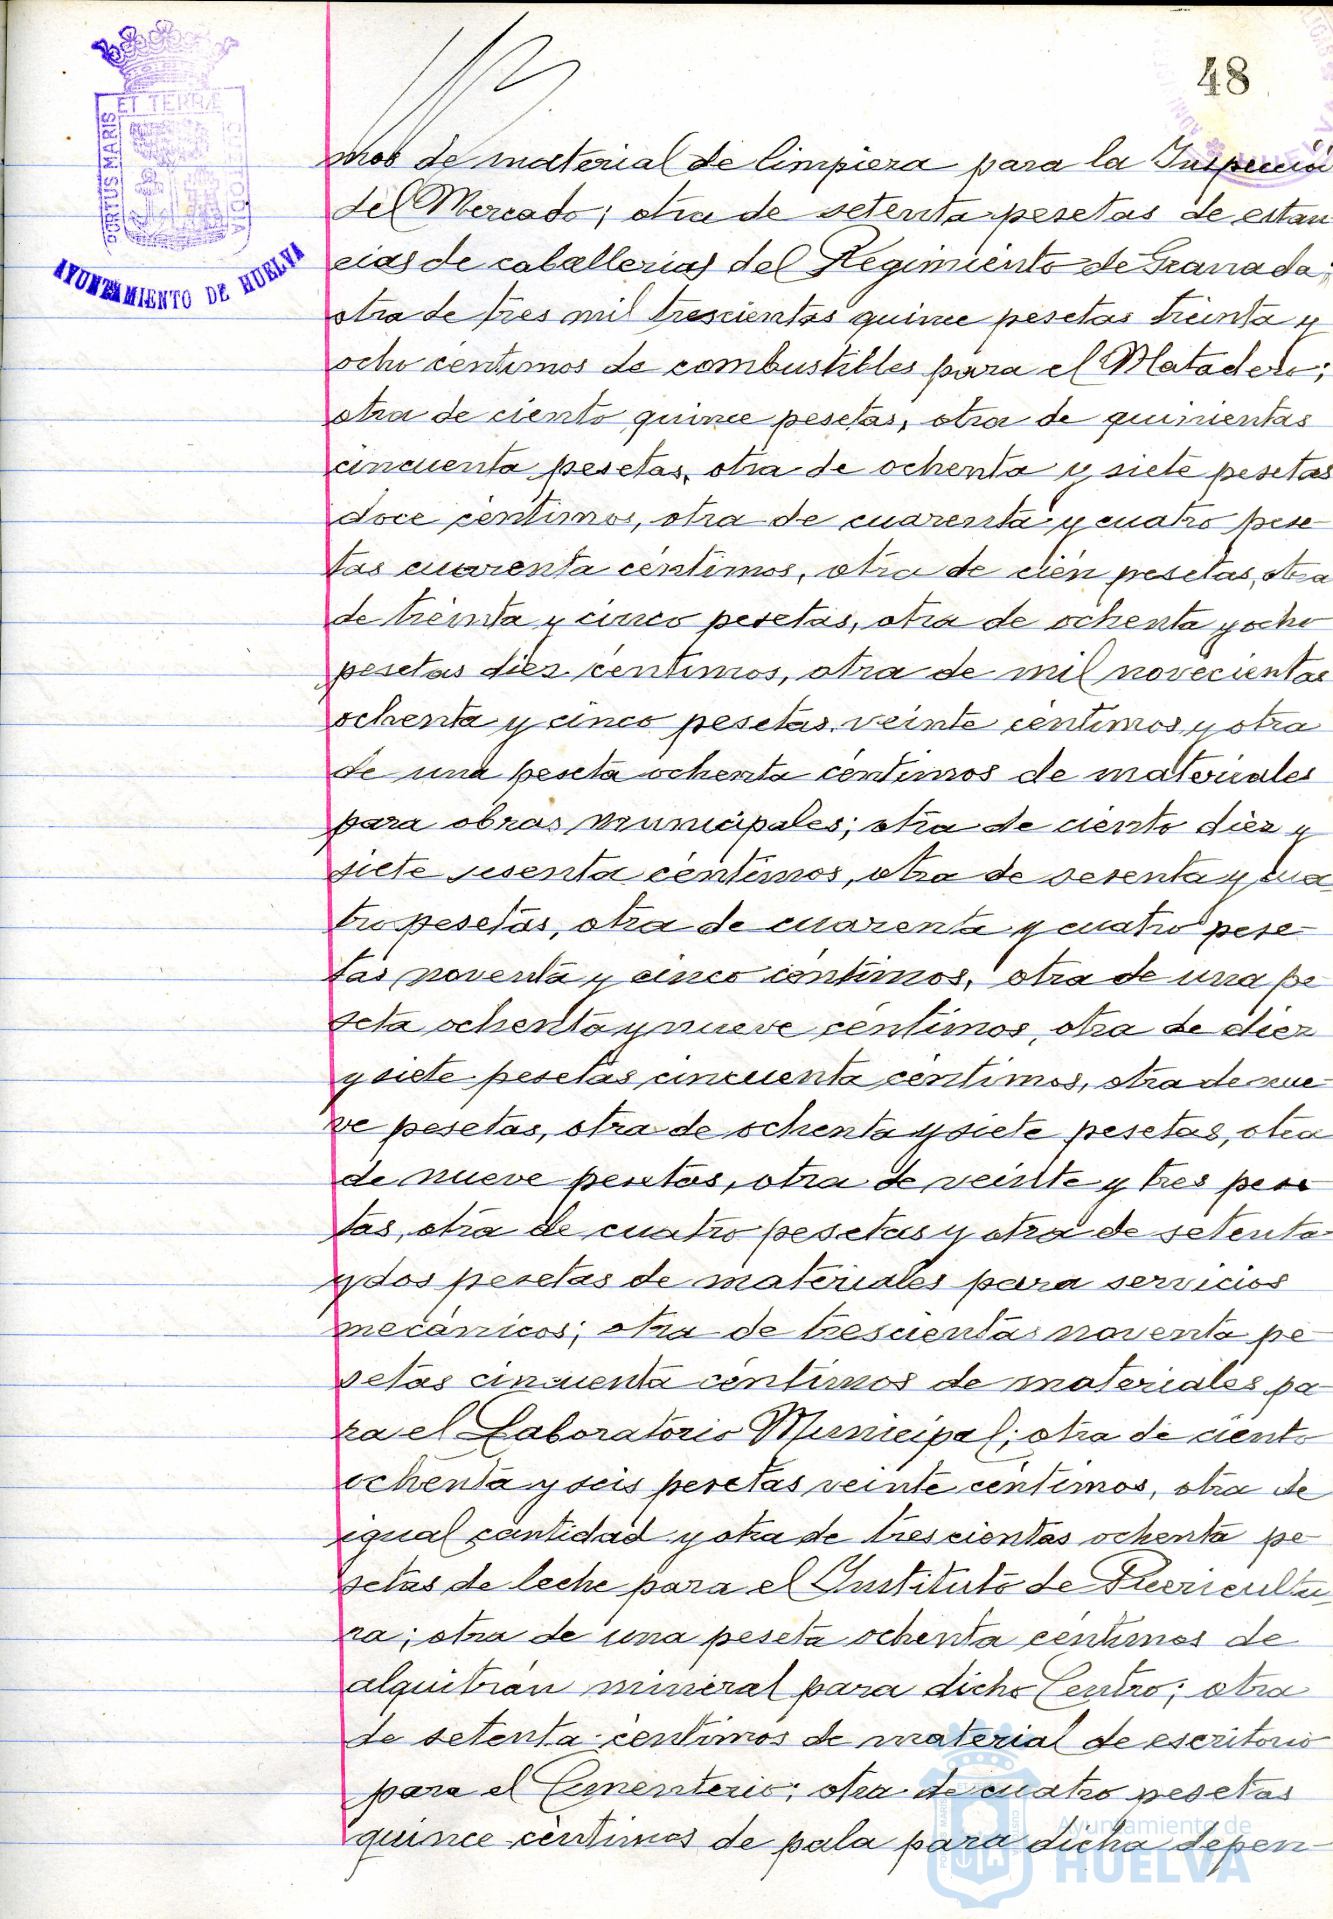 48
PORTUS MARIS ET TERRÆ CUSTODIA
AYUNTAMIENTO DE HUELVA
mos de material de limpieza para la Inspección
del Mercado; otra de setenta pesetas de estan-
cias de caballerias del Regimiento de Granada;
otra de tres mil trescientas quince pesetas treinta y
ocho céntimos de combustibles para el Matadero;
otra de ciento quince pesetas, otra de quinientas
cincuenta pesetas, otra de ochenta y siete pesetas
doce céntimos, otra de cuarenta y cuatro pese-
tas cuarenta céntimos, otra de cién pesetas, otra
de treinta y cinco pesetas, otra de ochenta y ocho
pesetas diez céntimos, otra de mil novecientas
ochenta y cinco pesetas veinte céntimos y otra
de una peseta ochenta céntimos de materiales
para obras municipales; otra de ciento diez y
siete sesenta céntimos, otra de sesenta y cua-
tro pesetas, otra de cuarenta y cuatro pese-
tas noventa y cinco céntimos, otra de una pe-
seta ochenta y nueve céntimos, otra de diez
y siete pesetas cincuenta céntimos, otra de nue-
ve pesetas, otra de ochenta y siete pesetas, otra
de nueve pesetas, otra de veinte y tres pese
tas, otra de cuatro pesetas y otra de setenta
y dos pesetas de materiales para servicios
mecánicos; otra de trescientas noventa pe-
setas cincuenta céntimos de materiales pa-
ra el Laboratorio Municipal; otra de ciento
ochenta y seis pesetas veinte céntimos, otra de
igual cantidad y otra de trescientas ochenta pe-
setas de leche para el Instituto de Puericultu-
ra; otra de una peseta ochenta céntimos de
alquitrán mineral para dicho Centro; otra
de setenta céntimos de material de escritorio
para el Cementerio; otra de cuatro pesetas
quince céntimos de pala para dicha depen-
Ayuntamiento de
HUELVA